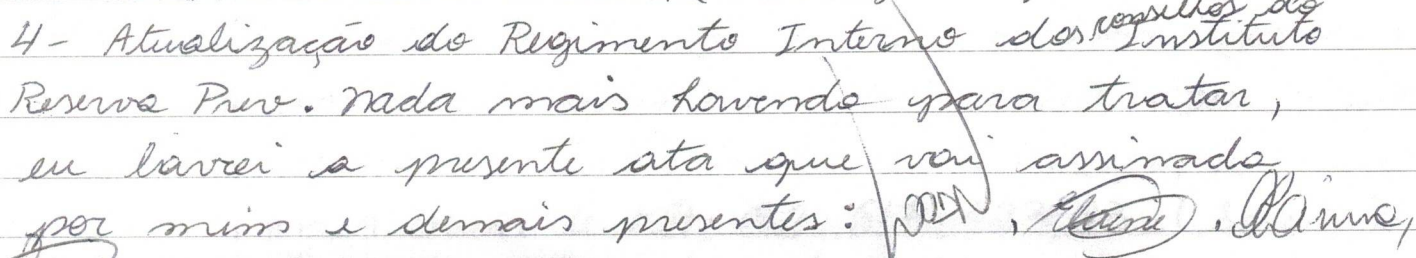 4- Atualização do Regimento Interno dos conselhos do Instituto
Reserva Prev. Nada mais havendo para tratar,
eu lavrei a presente ata que vai assinada
por mim e demais presentes: , Elaine,